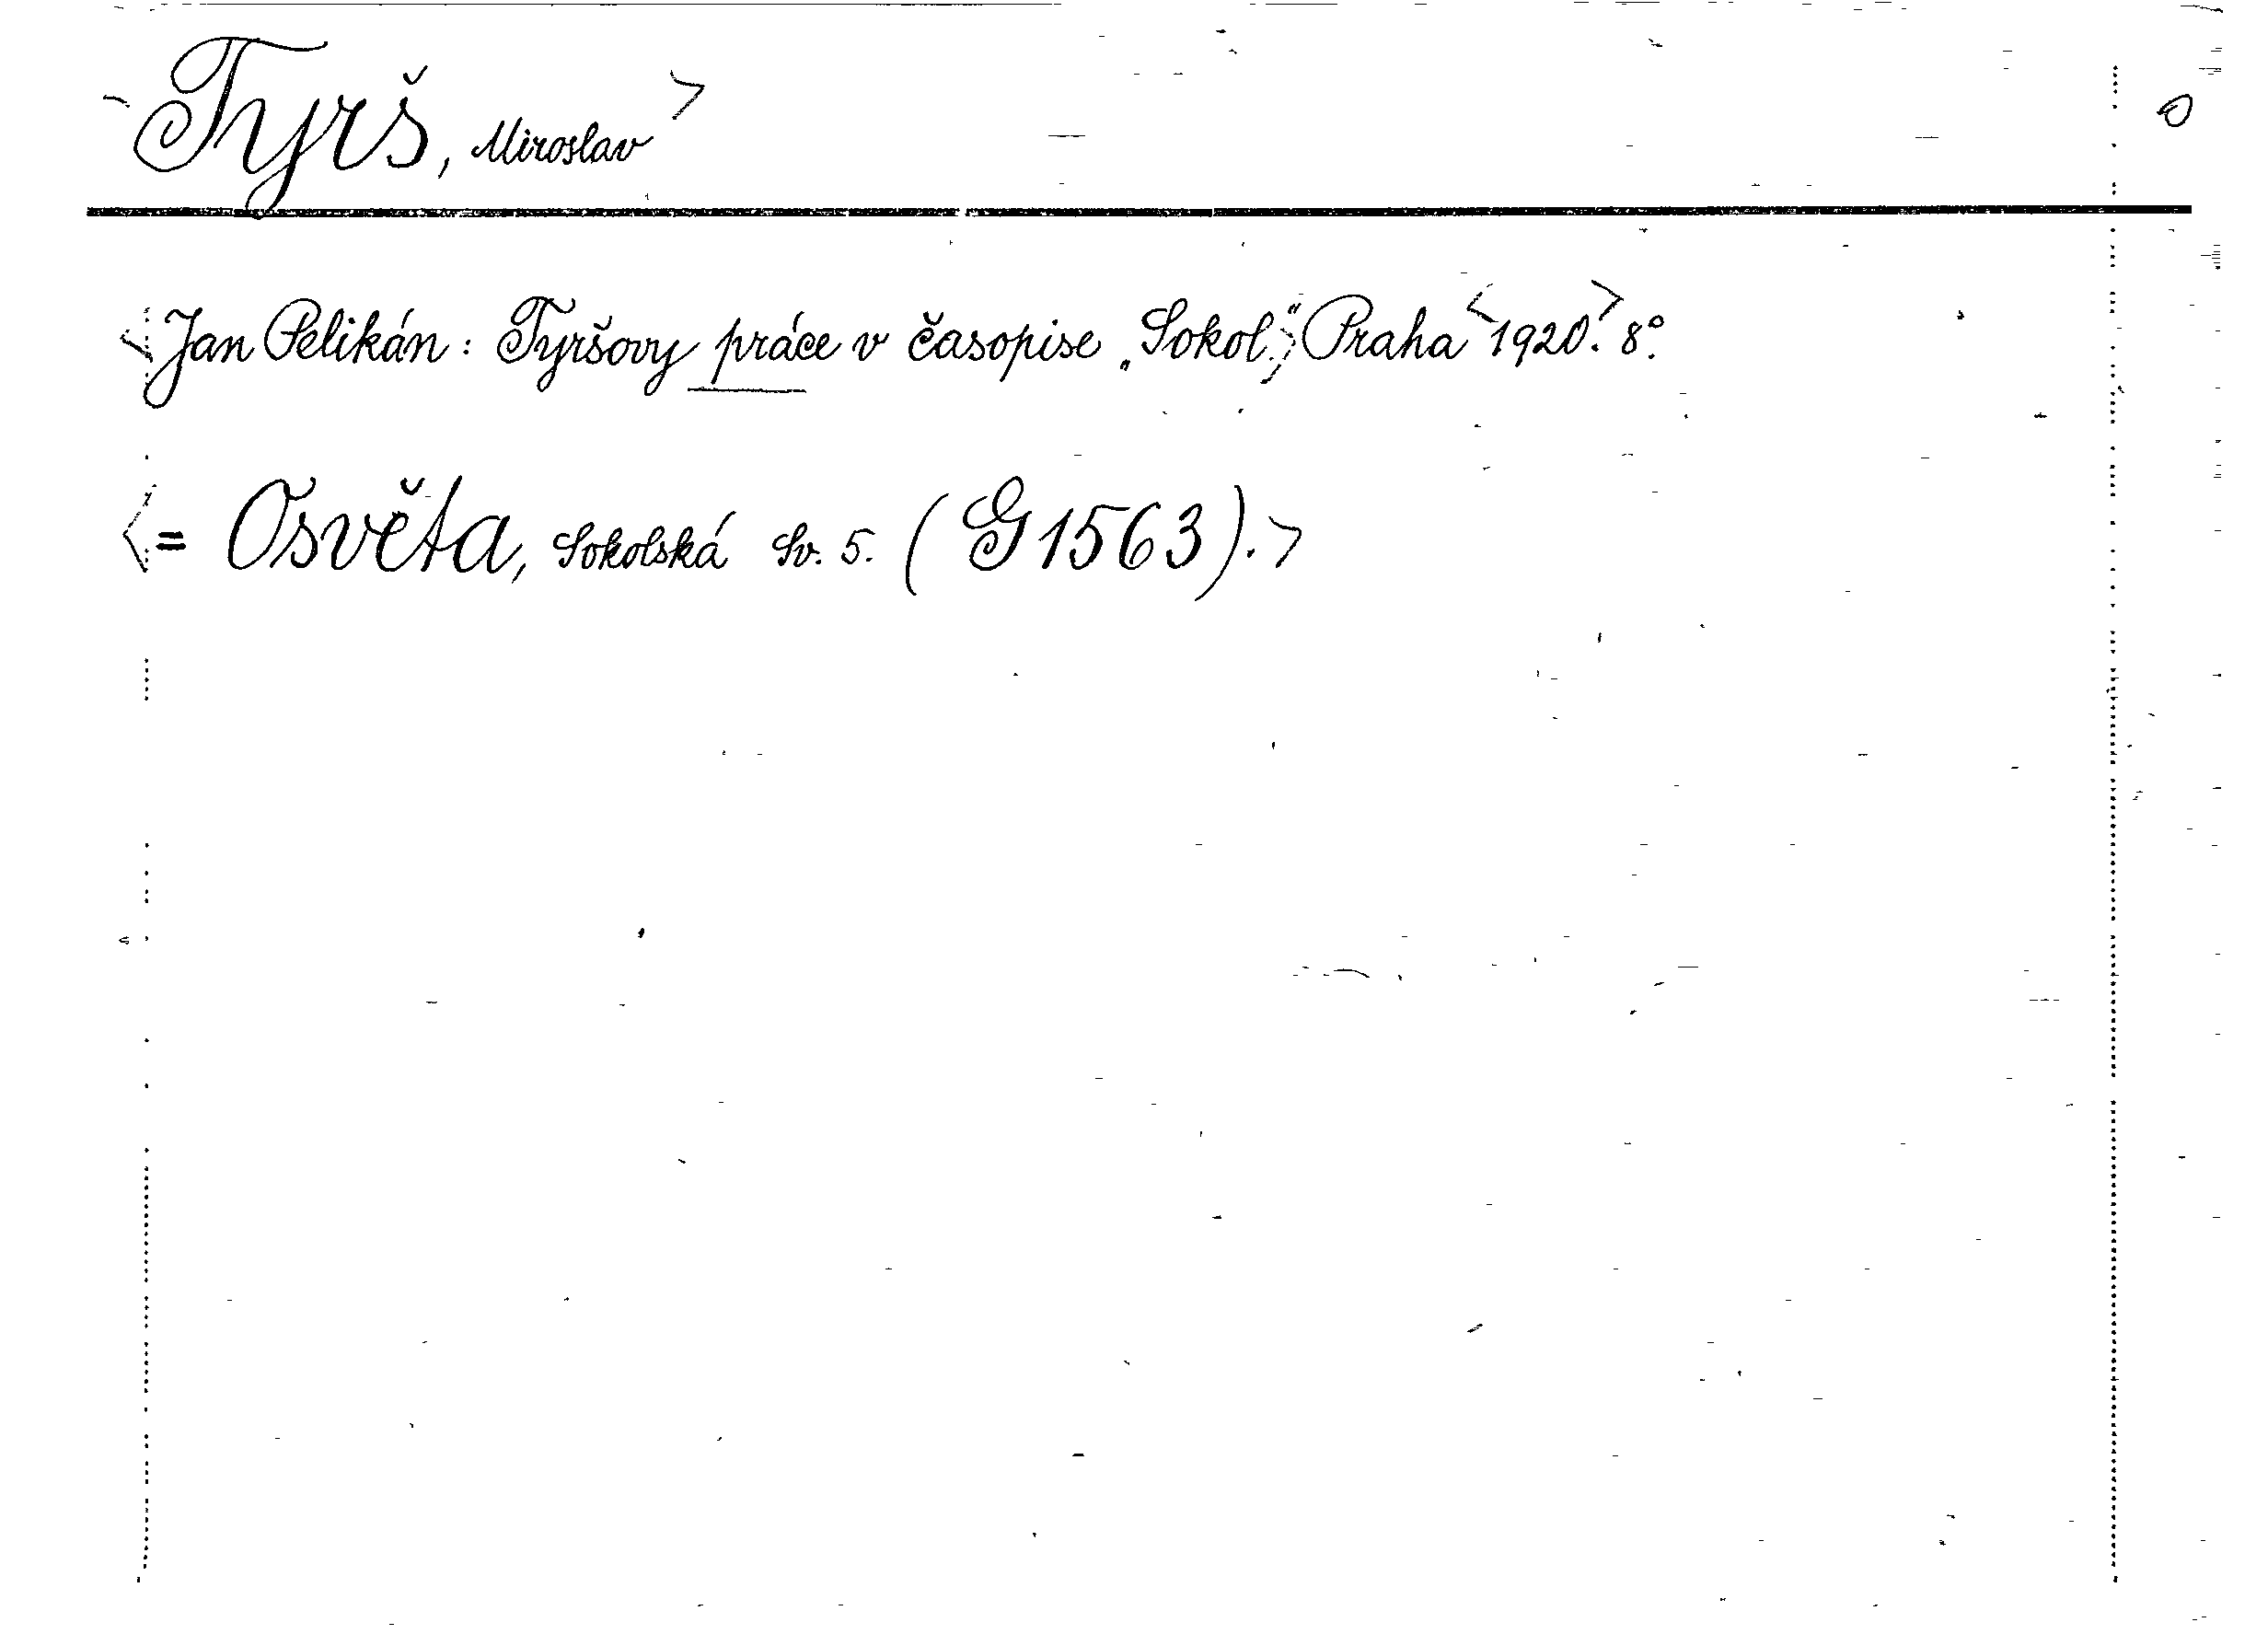 <Tyrš, Miroslav>
<Jan Pelikán: Tyršovy práce v časopise „Sokol.“> Praha <1920.> 8°.
<= Osvěta, Sokolská Sv. 5. (G 1563).>